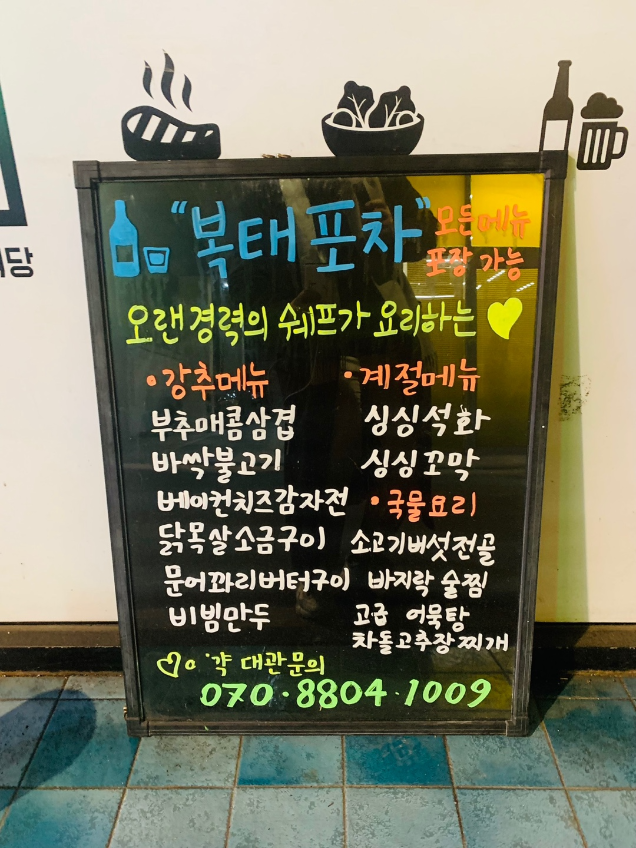 "복태포차"
모든메뉴
포장 가능
오랜경력의 쉐프가 요리하는
•강추메뉴
부추매콤삼겹
바싹불고기
베이컨치즈감자전
닭목살소금구이
문어꽈리버터구이
비빔만두
•계절메뉴
싱싱석화
싱싱꼬막
•국물요리
소고기버섯전골
바지락 술찜
고급 어묵탕
차돌고추장찌개
대관문의
070·8804·1009